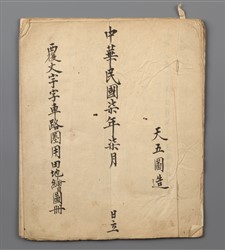 天五圖造
中華民國柒年柒月 日立
西大字字車路圈用田地繪圖冊